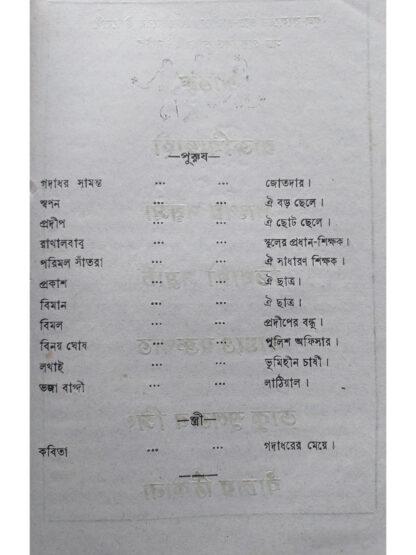 —পুরুষ—
গদাধর সামন্ত ... ... জোতদার।
স্বপন ... ... ঐ বড় ছেলে।
প্রদীপ ... ... ঐ ছোট ছেলে।
রাখালবাবু ... ... স্কুলের প্রধান-শিক্ষক।
পরিমল সাঁতরা ... ... ঐ সাধারণ শিক্ষক।
প্রকাশ ... ... ঐ ছাত্র।
বিমান ... ... ঐ ছাত্র।
বিমল ... ... প্রদীপের বন্ধু।
বিনয় ঘোষ ... ... পুলিশ অফিসার।
লখাই ... ... ভূমিহীন চাষী।
ভজা বাগ্দী ... ... লাঠিয়াল।
—স্ত্রী—
কবিতা ... ... গদাধরের মেয়ে।